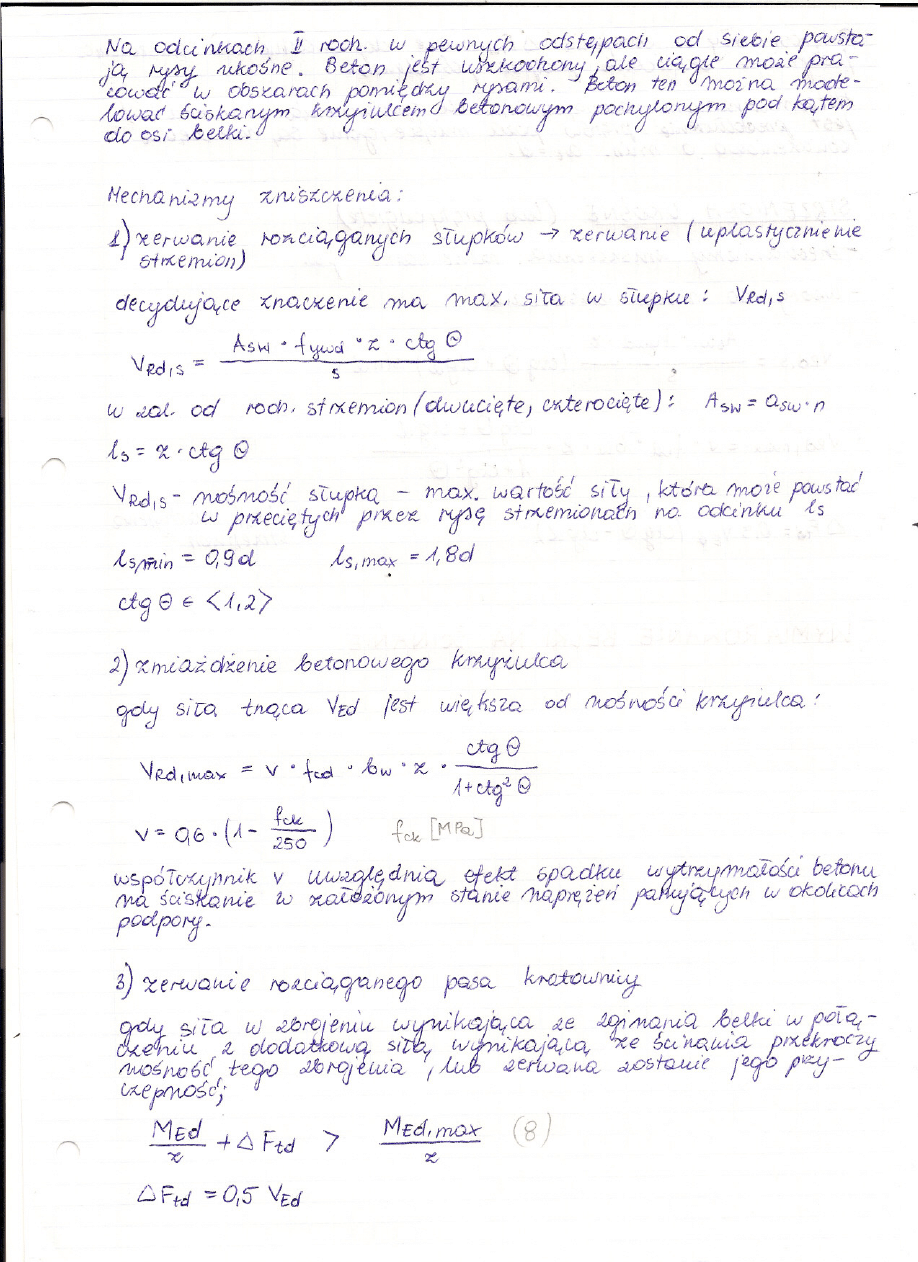 Na odcinkach II rodz. w pewnych odstępach od siebie powsta-
ją rysy ukośne. Beton jest uszkodzony, ale ciągle może pra-
cować w obszarach pomiędzy rysami. Beton ten można mode-
lować ściskanym krzyżulcem betonowym pochylonym pod kątem
do osi belki.
Mechanizmy zniszczenia:
1) zerwanie rozciąganych słupków → zerwanie (uplastycznienie
strzemion)
decydujące znaczenie ma max. siła w słupku: VRd,s
VRd,s = Asw · fywd · z · ctg Θ / s
w zal. od rodz. strzemion (dwucięte, czterocięte): Asw = asw · n
ls = z · ctg Θ
VRd,s - nośność słupka - max. wartość siły, która może powstać
w przeciętych przez rysę strzemionach na odcinku ls
ls,min = 0,9d ls,max = 1,8d
ctg Θ ∈ <1,2>
2) zmiażdżenie betonowego krzyżulca
gdy siła tnąca VEd jest większa od nośności krzyżulca:
VRd,max = v · fcd · bw · z · ctg Θ / 1+ctg² Θ
v = 0,6 · (1 - fck / 250) fck [MPa]
współczynnik v uwzględnia efekt spadku wytrzymałości betonu
na ściskanie w złożonym stanie naprężeń panujących w okolicach
podpory.
3) zerwanie rozciąganego pasa kratownicy
gdy siła w zbrojeniu wynikająca ze zginania belki w połą-
czeniu z dodatkową siłą wynikającą ze ścinania przekroczy
nośność tego zbrojenia, lub zerwana zostanie jego przy-
czepność;
MEd / z + Δ Ftd > MEd,max / z (8)
Δ Ftd = 0,5 VEd